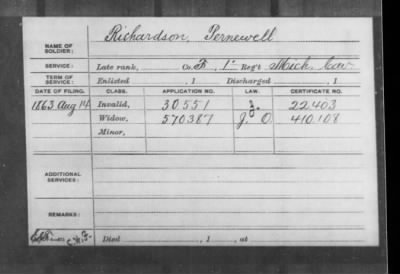 Richardson, Pernewell
NAME OF SOLDIER:
SERVICE: Late rank, Co. F, 1" Reg't Mich. Cav
TERM OF SERVICE: Enlisted , 1 Discharged , 1
DATE OF FILING. CLASS. APPLICATION NO. LAW. CERTIFICATE NO.
1863 Aug 14 Invalid, 30551 22,403
Widow, 570387 O. 410,108
Minor,
ADDITIONAL SERVICES:
REMARKS:
Died , 1 , at